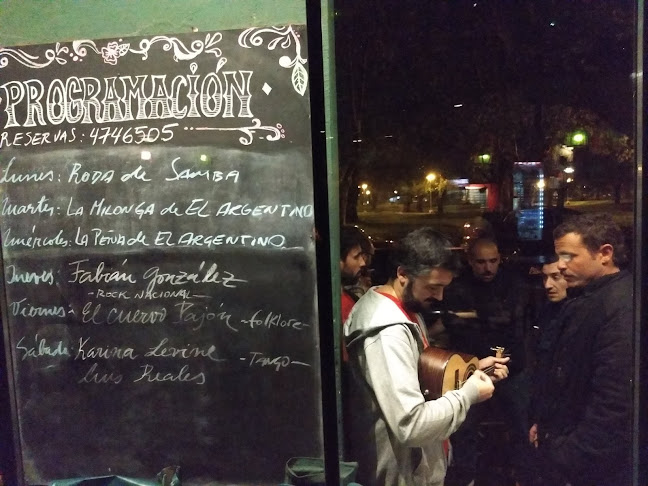 PROGRAMACIÓN
RESERVAS: 4746505
Lunes: RODA de SAMBA
Martes: LA MILONGA de EL ARGENTINO
Miércoles: LA PEÑA DE EL ARGENTINO
Jueves: Fabián González
-ROCK NACIONAL-
Viernes: El cuervo Pajón -folklore-
Sábado: Karina Levine -TANGO-
Luis Reales